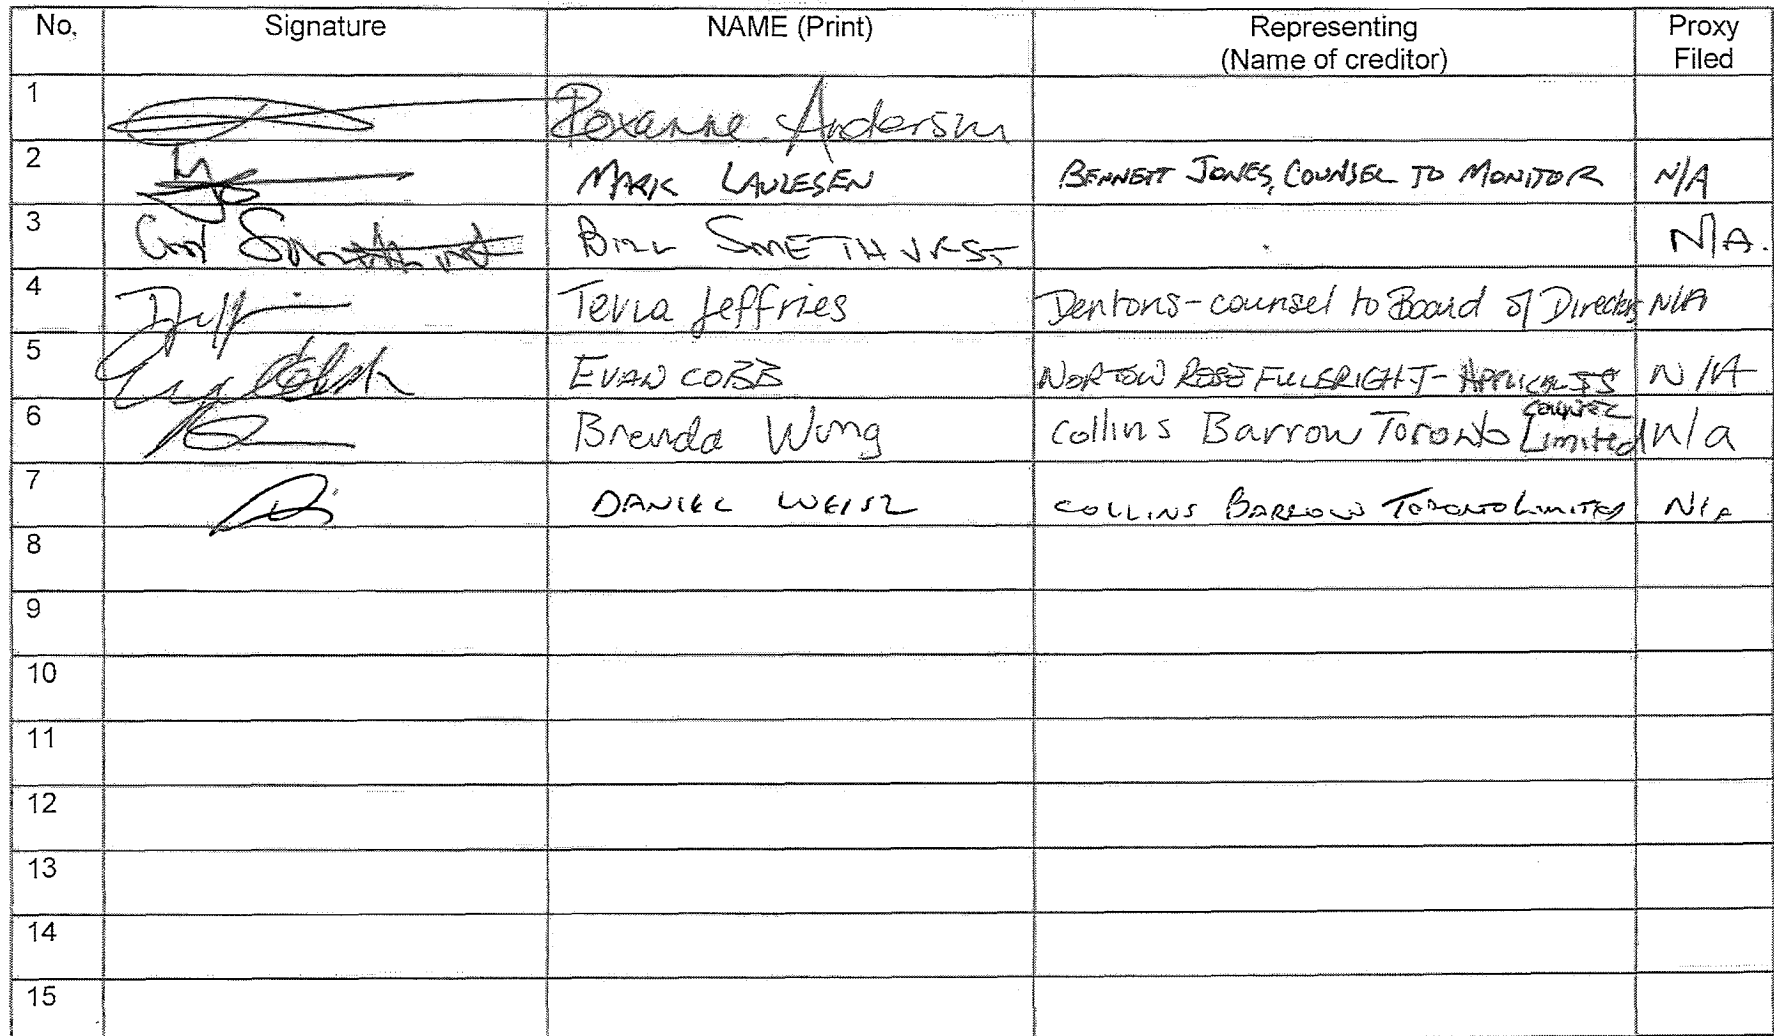 No. Signature NAME (Print) Representing Proxy
(Name of creditor) Filed
1 Roxanne Anderson
2 MARK LAULESEN BENNETT JONES, COUNSEL TO MONITOR N/A
3 BILL SMETHURST N/A.
4 Tevia Jeffries Dentons - counsel to Board of Directors N/A
5 EVAN COBB NORTON ROSE FULBRIGHT - APPLICANTS N/A
COUNSEL
6 Brenda Wong Collins Barrow Toronto Limited n/a
7 DANIEL WEISZ COLLINS BARROW TORONTO LIMITED N/A
8
9
10
11
12
13
14
15